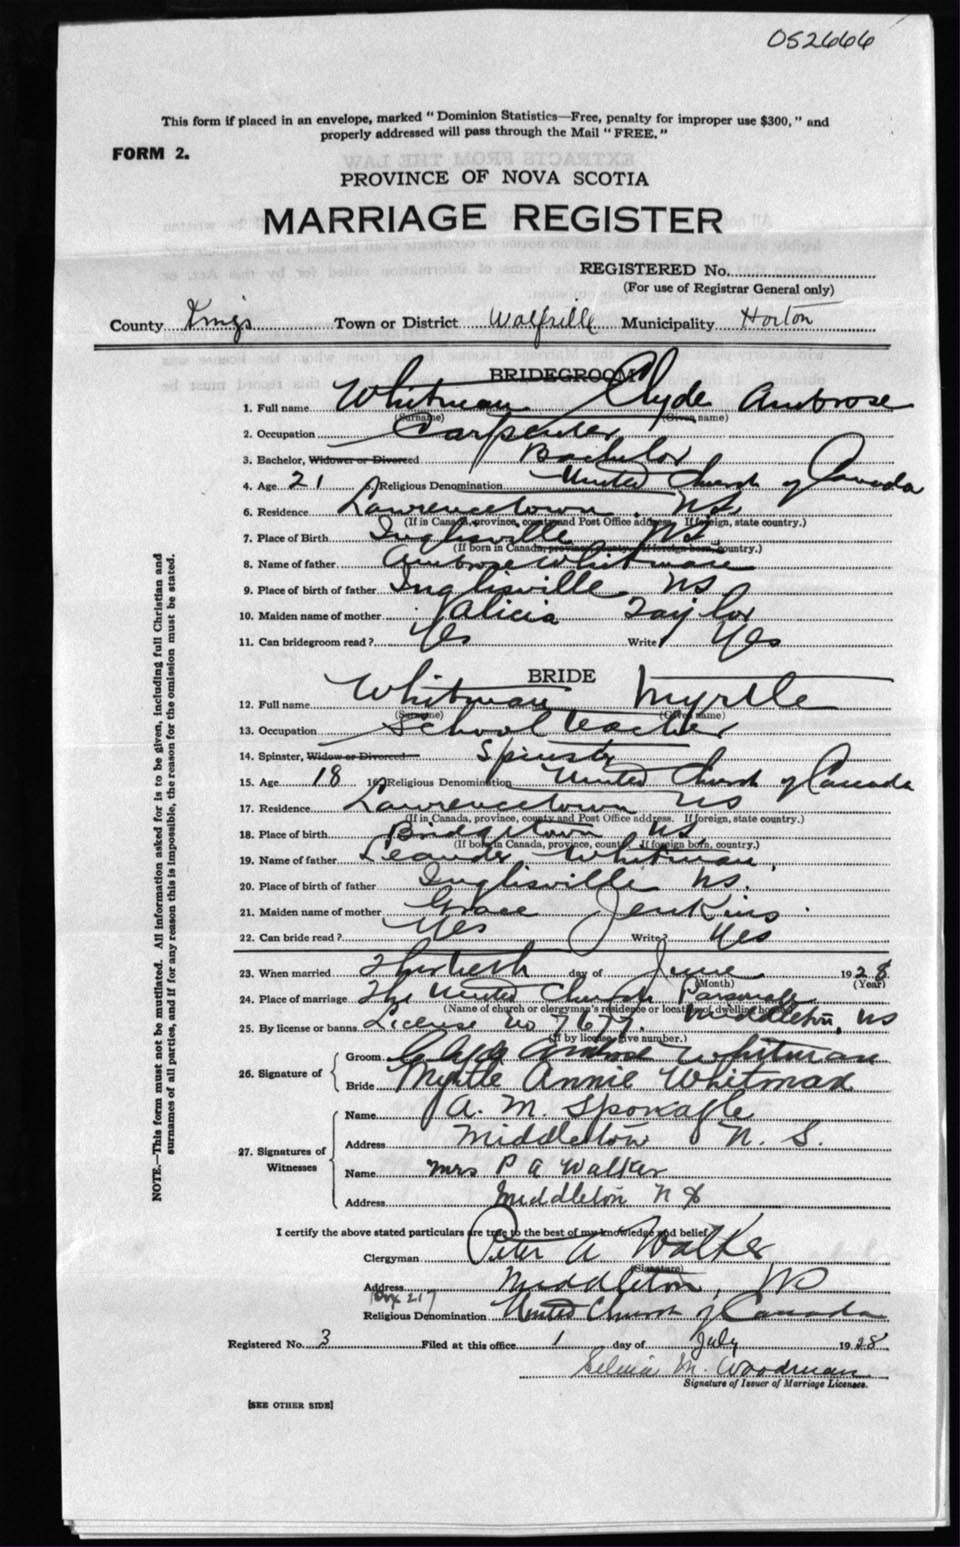 052666
This form if placed in an envelope, marked "Dominion Statistics—Free, penalty for improper use $300," and
properly addressed will pass through the Mail "FREE."
FORM 2.
PROVINCE OF NOVA SCOTIA
MARRIAGE REGISTER
REGISTERED No.
(For use of Registrar General only)
County Kings Town or District Wolfville Municipality Horton
BRIDEGROOM
1. Full name Whitman Clyde Ambrose
(Surname) (Given name)
2. Occupation Carpenter
3. Bachelor, Widower or Divorced Bachelor
4. Age 21 5. Religious Denomination United Church of Canada
6. Residence Lawrencetown NS
(If in Canada, province, county and Post Office address. If foreign, state country.)
7. Place of Birth Inglisville NS
(If born in Canada, province, county, If foreign born, country.)
8. Name of father Ambrose Whitman
9. Place of birth of father Inglisville NS
10. Maiden name of mother Alicia Taylor
11. Can bridegroom read? Yes Write? Yes
BRIDE
12. Full name Whitman Myrtle
(Surname) (Given name)
13. Occupation School teacher
14. Spinster, Widow or Divorced Spinster
15. Age 18 16. Religious Denomination United Church of Canada
17. Residence Lawrencetown NS
(If in Canada, province, county and Post Office address. If foreign, state country.)
18. Place of birth Bridgetown NS
(If born in Canada, province, county, If foreign born, country.)
19. Name of father Leander Whitman
20. Place of birth of father Inglisville NS.
21. Maiden name of mother Grace Jenkins
22. Can bride read? Yes Write? Yes
23. When married Thirtieth day of June 1928
(Month) (Year)
24. Place of marriage The United Church Parsonage
(Name of church or clergyman's residence or location of dwelling house)
Middleton, NS
25. By license or banns License no 7677
(If by license, give number.)
26. Signature of
Groom Clyde Ambrose Whitman
Bride Myrtle Annie Whitman
27. Signatures of Witnesses
Name A. M. Sponagle
Address Middleton N. S.
Name Mrs P A Walker
Address Middleton N S
I certify the above stated particulars are true to the best of my knowledge and belief
Clergyman Peter A Walker
(Signature)
Address Middleton, NS
Box 217
Religious Denomination United Church of Canada
Registered No. 3 Filed at this office 1 day of July 1928
M. Woodman
Signature of Issuer of Marriage Licenses.
[SEE OTHER SIDE]
NOTE.—This form must not be mutilated. All information asked for is to be given, including full Christian and
surnames of all parties, and if for any reason this is impossible, the reason for the omission must be stated.